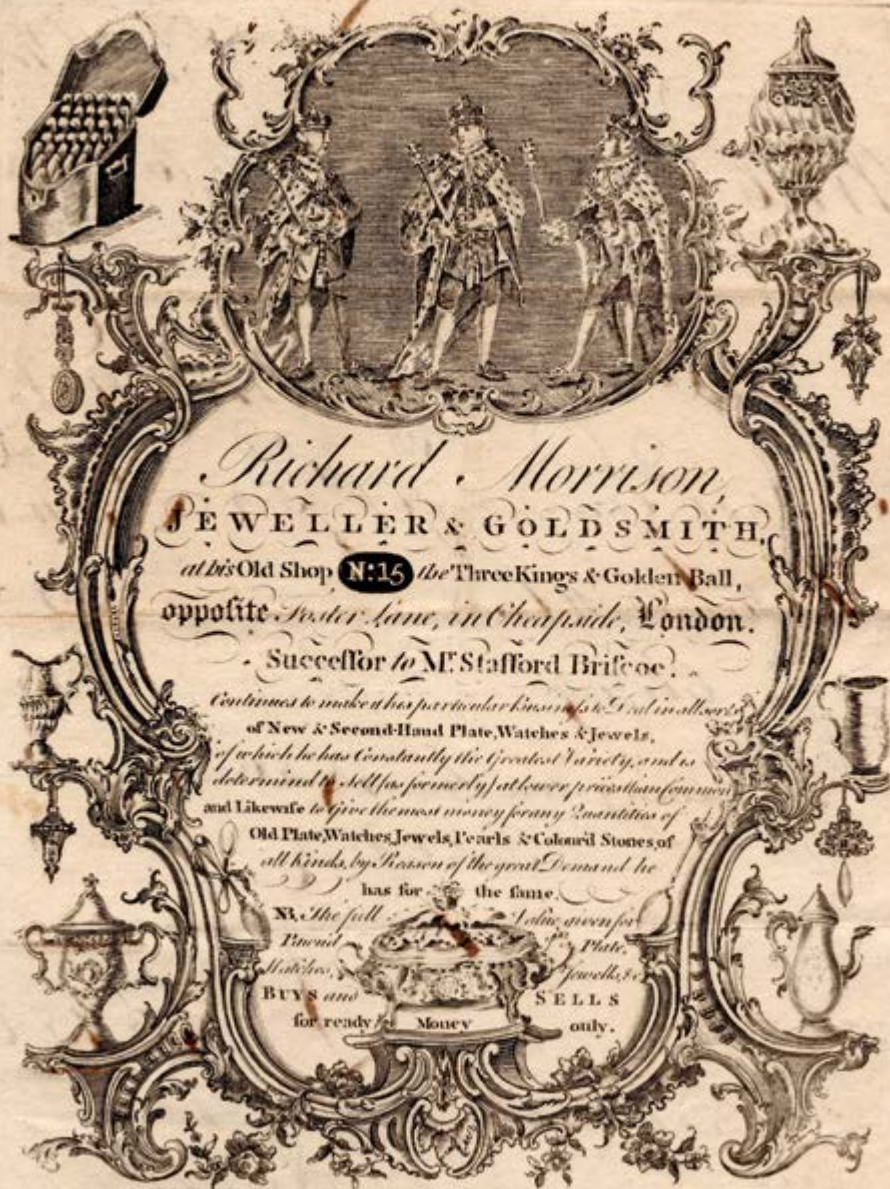 Richard Morrison,
JEWELLER & GOLDSMITH,
at his Old Shop No: 15 the Three Kings & Golden Ball,
opposite Foster Lane, in Cheapside, London.
Succeſſor to Mr. Stafford Briſcoe.
Continues to make it his particular Busineſs to Deal in all sorts
of New & Second-Hand Plate, Watches & Jewels,
of which he has Constantly the Greatest Variety, and is
determin'd to Sell (as formerly) at lower prices than Common
and Likewiſe to Give the most money for any Quantities of
Old Plate, Watches, Jewels, Pearls & Colour'd Stones, of
all Kinds, by Reason of the great Demand he
has for the ſame.
NB, The full Value given for
Pawn'd Plate,
Watches, Jewells, &c
BUYS and SELLS
for ready Money only.